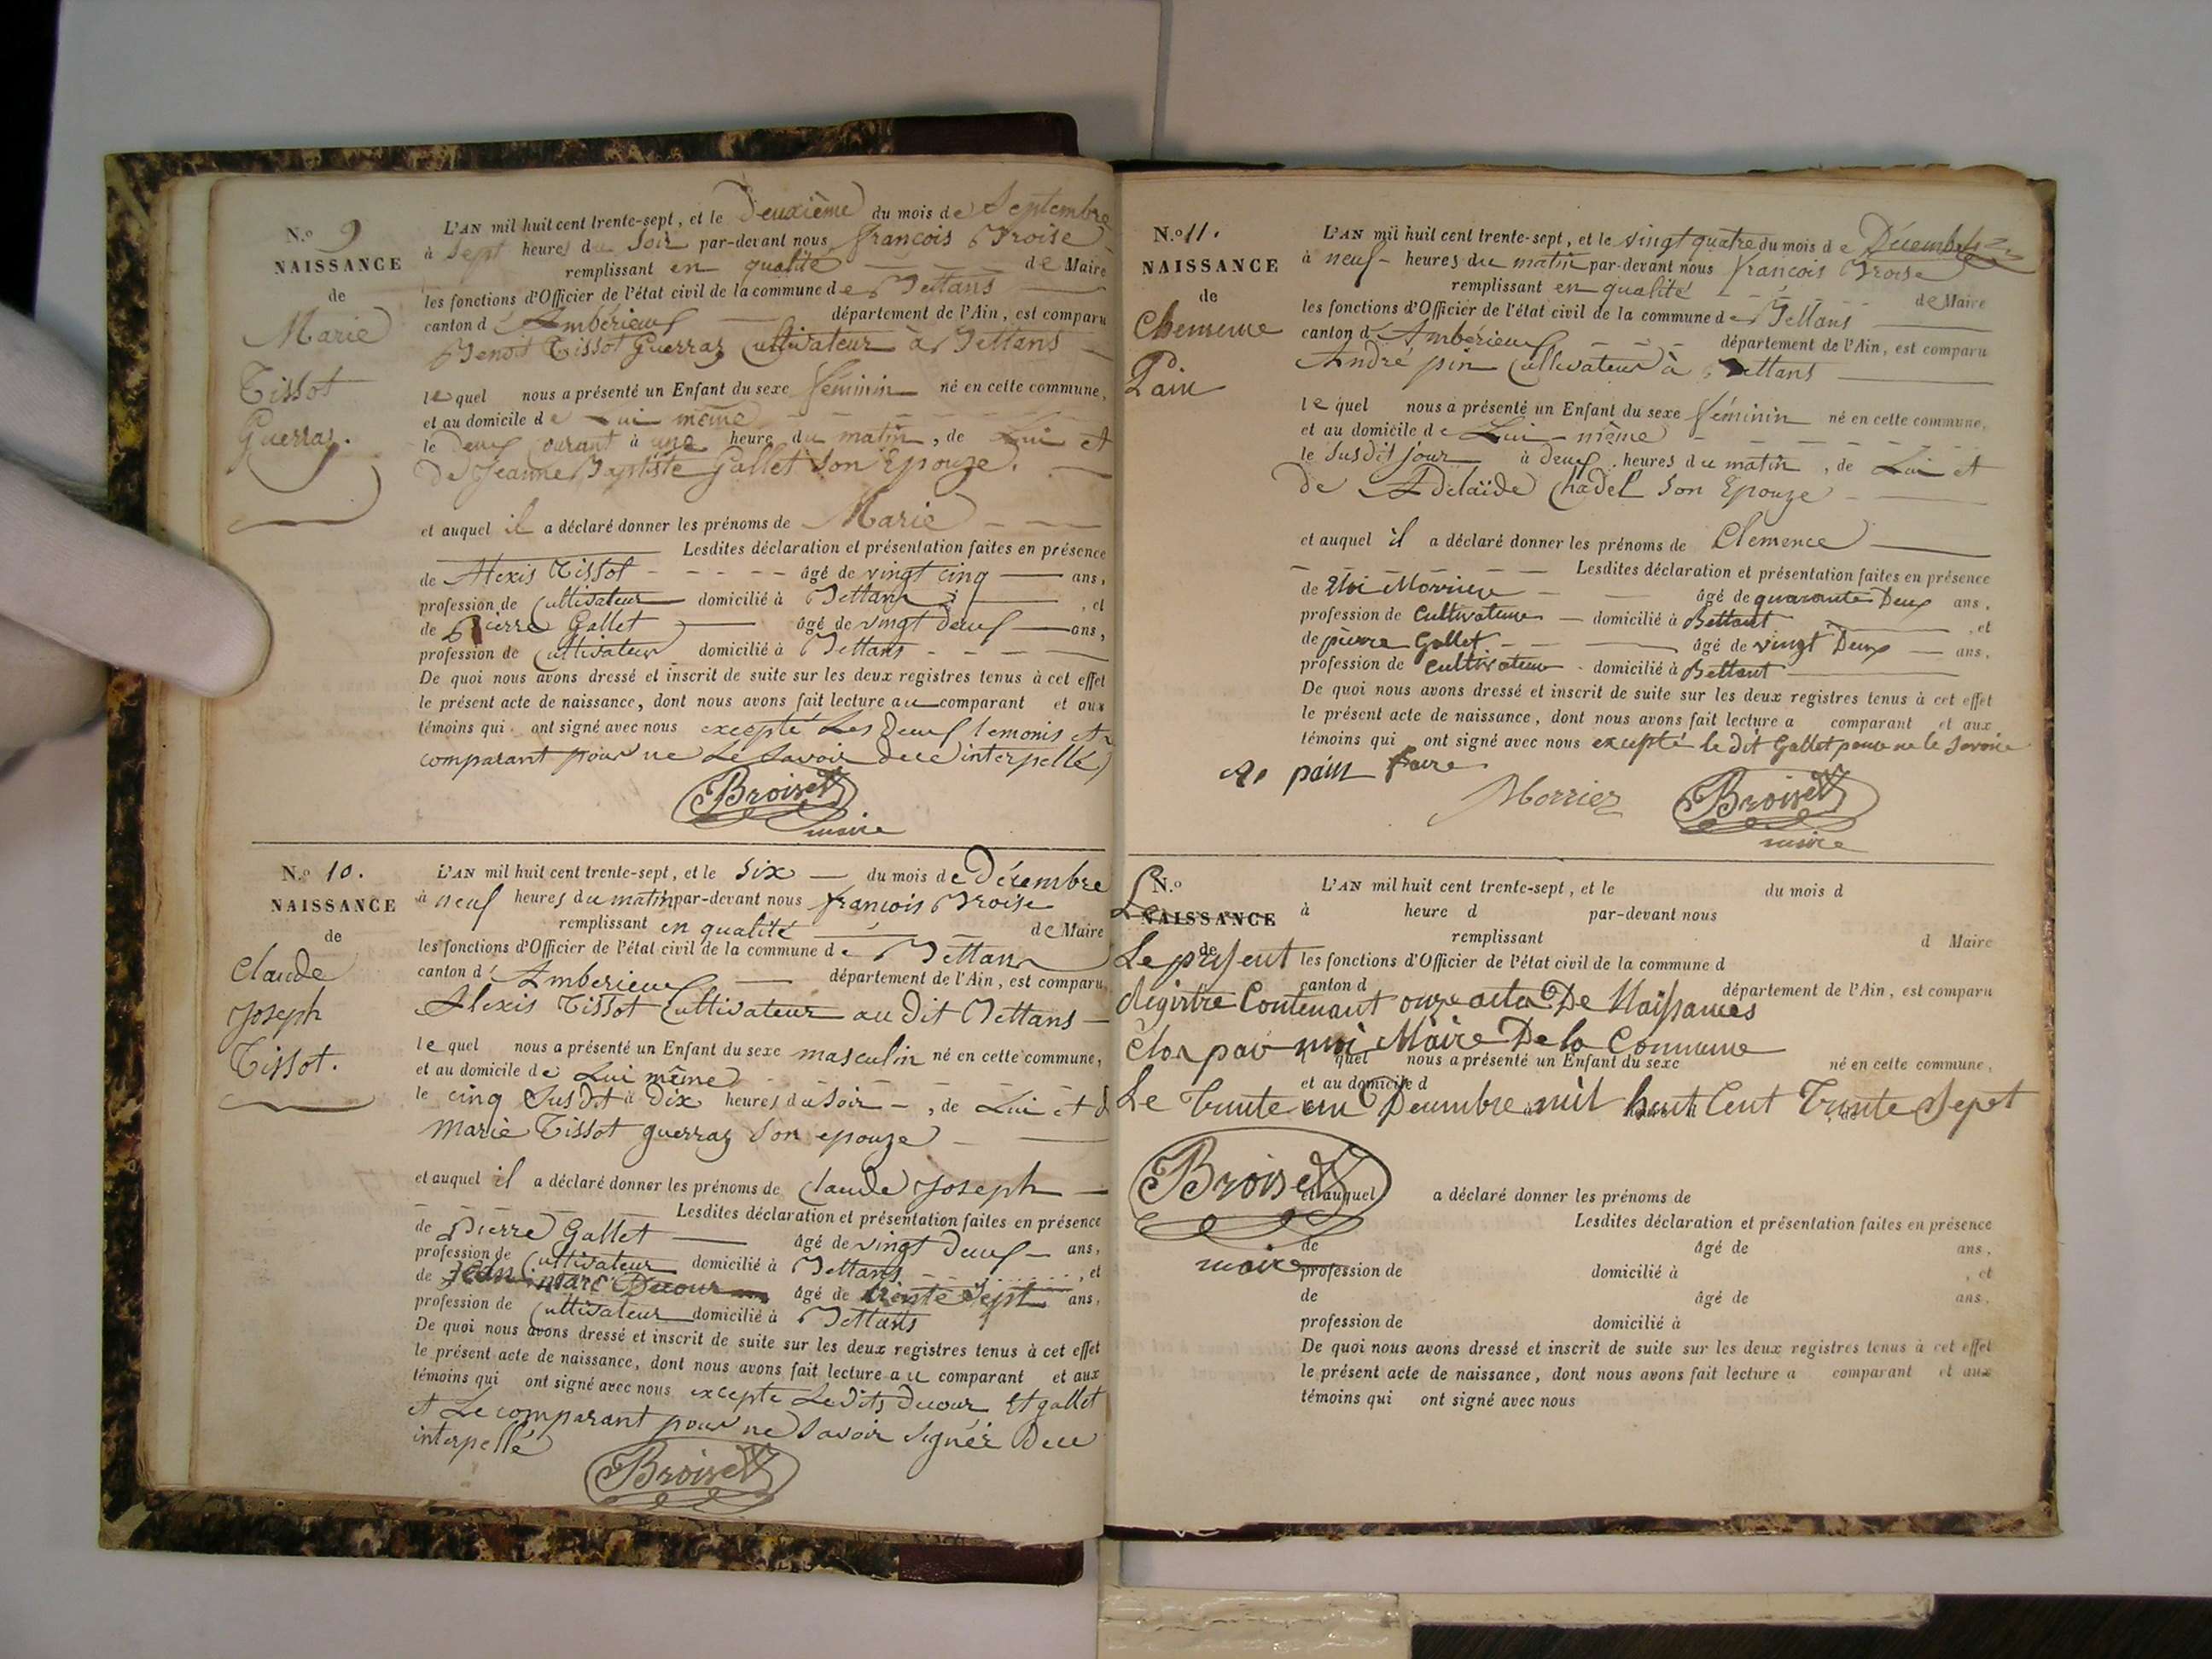 N.o 9
NAISSANCE
de
Marie
Tissot
Guerraz.
L'AN mil huit cent trente-sept, et le Deuxième du mois de Septembre
à Sept heures du Soir par-devant nous françois Broise
remplissant en qualité de Maire
les fonctions d'Officier de l'état civil de la commune de Bettans
canton d'Ambérieux département de l'Ain, est comparu
Benoit Tissot Guerraz Cultivateur à Bettans
lequel nous a présenté un Enfant du sexe féminin né en cette commune,
et au domicile de Lui même
le Deux Courant à une heure du matin, de Lui et
De Jeanne Baptiste Gallet Son Epouze.
et auquel il a déclaré donner les prénoms de Marie
Lesdites déclaration et présentation faites en présence
de Alexis Tissot âgé de vingt cinq ans,
profession de Cultivateur domicilié à Bettans, et
de Pierre Gallet âgé de vingt deux ans,
profession de Cultivateur domicilié à Bettans
De quoi nous avons dressé et inscrit de suite sur les deux registres tenus à cet effet
le présent acte de naissance, dont nous avons fait lecture au comparant et aux
témoins qui ont signé avec nous excepté Les Deux temonis et
comparant pour ne Le Savoir Dece interpellé
Broiset
maire
N.o 10.
NAISSANCE
de
Claude
Joseph
Tissot.
L'AN mil huit cent trente-sept, et le Six du mois de Décembre
à neuf heures du matin par-devant nous françois Broise
remplissant en qualité de Maire
les fonctions d'Officier de l'état civil de la commune de Bettans
canton d'Amberieux département de l'Ain, est comparu,
Alexis Tissot Cultivateur au Dit Bettans
lequel nous a présenté un Enfant du sexe masculin né en cette commune,
et au domicile de Lui même
le cinq Susdit à Dix heures du Soir, de Lui et d
Marie Tissot guerraz Son epouze
et auquel il a déclaré donner les prénoms de Claude Joseph
Lesdites déclaration et présentation faites en présence
de Pierre Gallet âgé de vingt deux ans,
profession de Cultivateur domicilié à Bettans, et
de Jean marc Ducour âgé de trente Sept ans,
profession de Cultivateur domicilié à Bettans
De quoi nous avons dressé et inscrit de suite sur les deux registres tenus à cet effet
le présent acte de naissance, dont nous avons fait lecture au comparant et aux
témoins qui ont signé avec nous excepte Ledits Ducour Et gallet
et Le comparant pour ne Savoir Signér Dece
interpellé
Broiset
N.o 11.
NAISSANCE
de
Clemence
Pain
L'AN mil huit cent trente-sept, et le vingt quatre du mois de Décembre
à neuf heures du matin par-devant nous François Broise
remplissant en qualité de Maire
les fonctions d'Officier de l'état civil de la commune de Bettans
canton d'Ambérieux département de l'Ain, est comparu
André pin Cultivateur à Bettans
lequel nous a présenté un Enfant du sexe féminin né en cette commune,
et au domicile de Lui-même
le Susdit jour à deux heures du matin, de Lui et
De Adelaïde Chadel Son Epouze
et auquel il a déclaré donner les prénoms de Clemence
Lesdites déclaration et présentation faites en présence
de âgé de quarante Deux ans,
profession de Cultivateur domicilié à Bettant, et
de pierre Gallet âgé de vingt Deux ans,
profession de Cultivateur domicilié à Bettant
De quoi nous avons dressé et inscrit de suite sur les deux registres tenus à cet effet
le présent acte de naissance, dont nous avons fait lecture a comparant et aux
témoins qui ont signé avec nous excepté le dit Gallet pour ne le Savoir
faire
A. pain
Morrier
Broiset
maire
N.o
NAISSANCE
de
L'AN mil huit cent trente-sept, et le du mois d
à heure d par-devant nous
remplissant d Maire
les fonctions d'Officier de l'état civil de la commune d
canton d département de l'Ain, est comparu
Le présent
Régistre Contenant onze actes De Naissances
Clos par moi Maire De la Commune
quel nous a présenté un Enfant du sexe né en cette commune,
et au domicile d
Le trente un Decembre mil huit Cent Trente Sept
Broiset
maire
et auquel a déclaré donner les prénoms de
Lesdites déclaration et présentation faites en présence
de âgé de ans,
profession de domicilié à , et
de âgé de ans,
profession de domicilié à
De quoi nous avons dressé et inscrit de suite sur les deux registres tenus à cet effet
le présent acte de naissance, dont nous avons fait lecture a comparant et aux
témoins qui ont signé avec nous